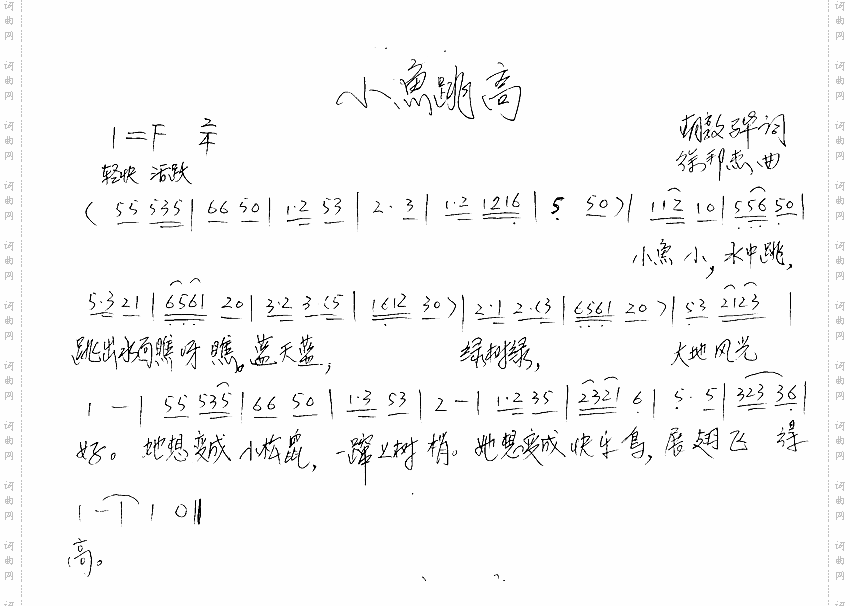 小魚跳高
1=F 2/4
轻快 活跃
词
徐邦杰 曲
( 55 535 | 66 50 | 1·2 53 | 2· 3 | 1·2 1216 | 5· 50 ) | 112 10 | 556 50 |
小魚 小，水中跳，
5·3 21 | 6561 20 | 3·2 3 (5 | 1612 30 ) | 2·1 2·(3 | 6561 20 ) | 53 2123 |
跳出水面瞧呀 瞧。蓝天蓝， 绿树绿， 大地风光
1 - | 55 535 | 66 50 | 1·3 53 | 2 - | 1·2 35 | 2321 6 | 5· 5 | 323 36 |
好。 她想变成 小松鼠，一蹿上树 梢。她想变成 快乐鸟，展翅飞 得
1 - | 1 0 ‖
高。
词曲网